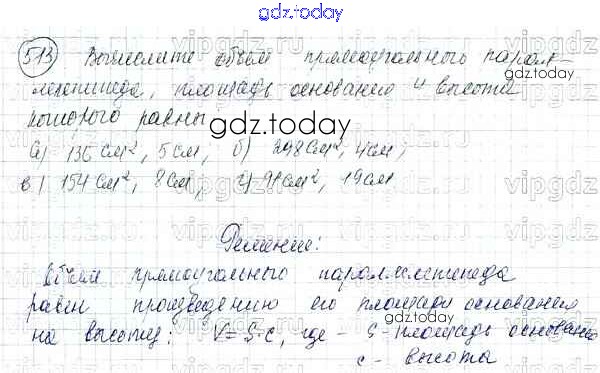 gdz.today
573 Вычислите объем прямоугольного парал-
лелепипеда, площадь основания и высота
gdz.today
которого равны
gdz.today
а) 136 см², 5 см, б) 248 см², 4 см;
в) 154 см², 8 см, г) 91 см², 19 см
Решение:
Объем прямоугольного параллелепипеда
равен произведению его площади основания
на высоту: V=S·c, где - S-площадь основания
c - высота